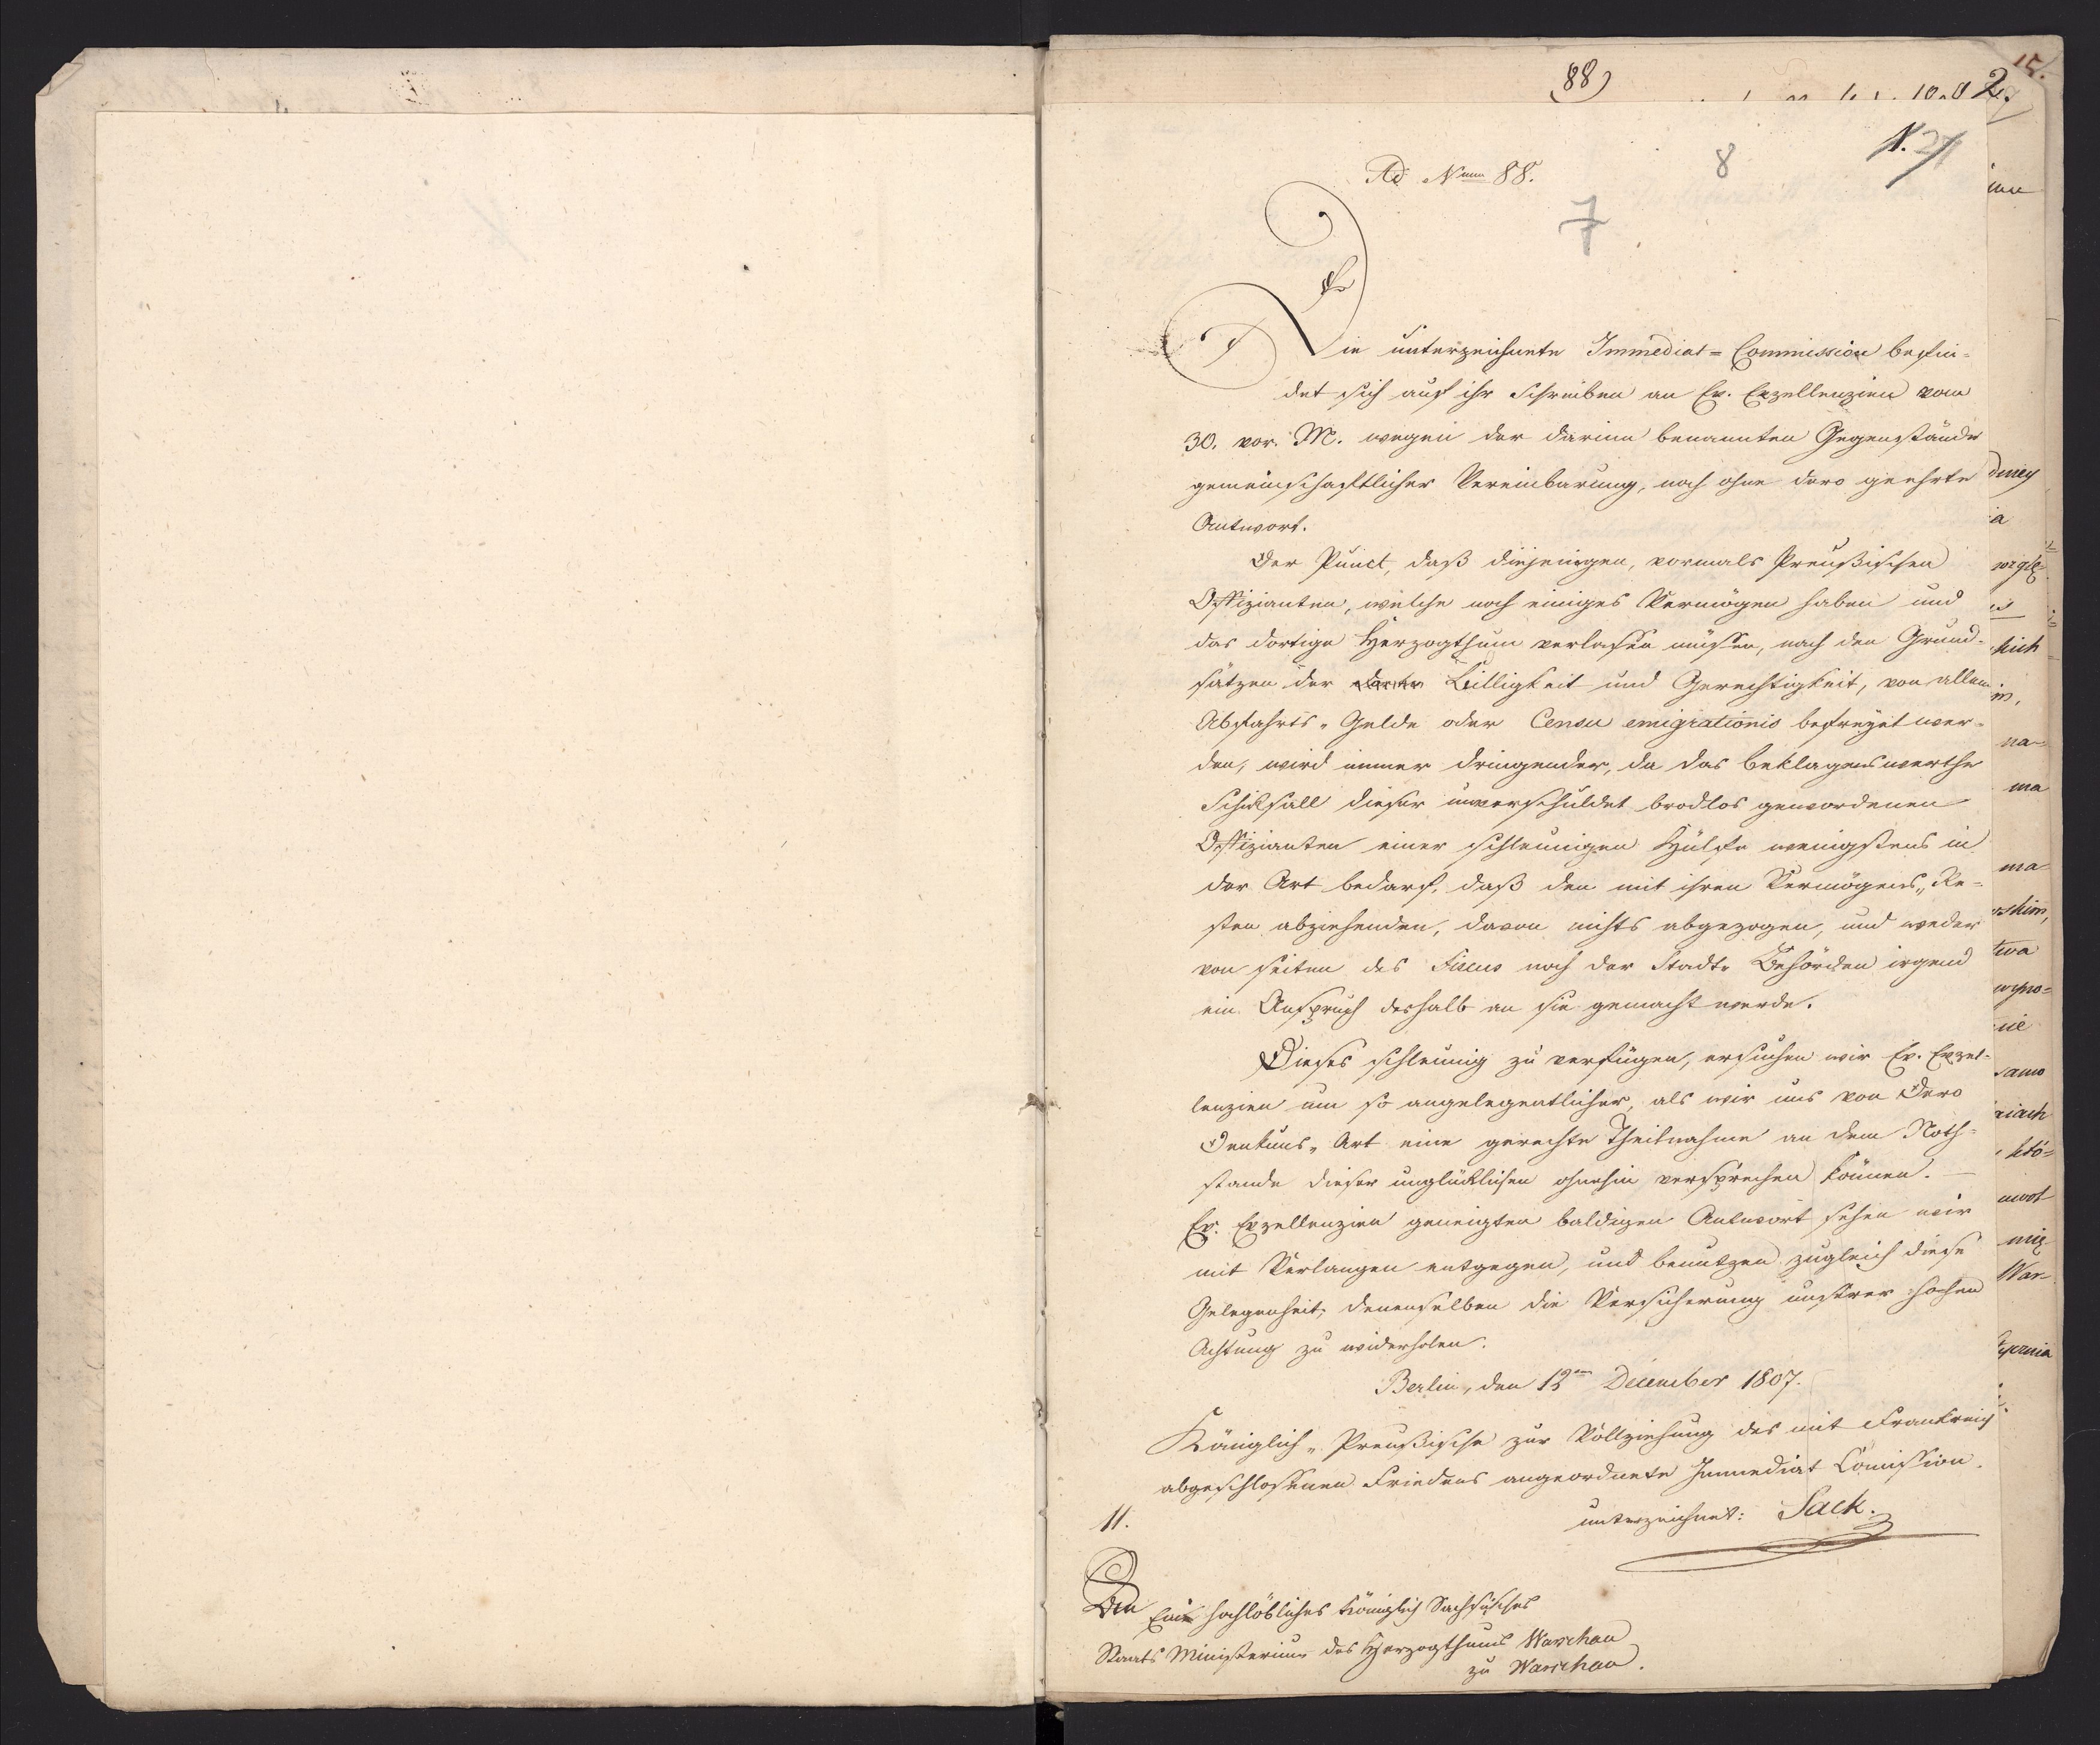 88)
15.
2.
Ad Num 88.
8
7
Die unterzeichnete Immediat=Commission befin-
det sich auf ihr Schreiben an Ew. Exzellenzien vom
30. vor. M. wegen der darinn benannten Gegenstände
gemeinschaftlicher Vereinbarung, noch ohne dero geehrte
Antwort.
Der Punct, daß diejenigen, vormals Preußischen
Offizianten, welche noch einiges Vermögen haben und
das dortige Herzogthum verlassen müssen, nach den Grund-
sätzen der Billigkeit und Gerechtigkeit, von allem
Abfahrts-Gelde oder Censu emigrationis befreyet wer-
den, wird immer dringender, da das beklagenswerthe
Schicksall dieser unverschuldet brodlos gewordenen
Offizianten einer schleunigen Hülfe wenigstens in
der Art bedarf, daß den mit ihren Vermögens-Re-
sten abziehenden, davon nichts abgezogen, und weder
von seiten des Fiscus noch der Stadt-Behörden irgend
ein Anspruch deshalb an sie gemacht werde.
Dieses schleunig zu verfügen, ersuchen wir Ew. Exzel-
lenzien um so angelegentlicher, als wir uns von Dero
Denkuns-Art eine gerechte Theilnahme an dem Noth-
stande dieser unglücklichen ohnehin versprechen können. —
Ew. Exzellenzien geneigten baldigen Antwort sehen wir
mit Verlangen entgegen, und benutzen zugleich diese
Gelegenheit, denenselben die Versicherung unsrer hohen
Achtung zu widerholen.
Berlin, den 12ten December 1807.
Königlich-Preußische zur Vollziehung des mit Frankreich
abgeschlossenen Friedens angeordnete Immediat Comission.
unterzeichnet: Sack.
11.
An Ein hochlöbliches Königlich Sachsisches
Staats Ministerium des Herzogthums Warschau
zu Warschau.